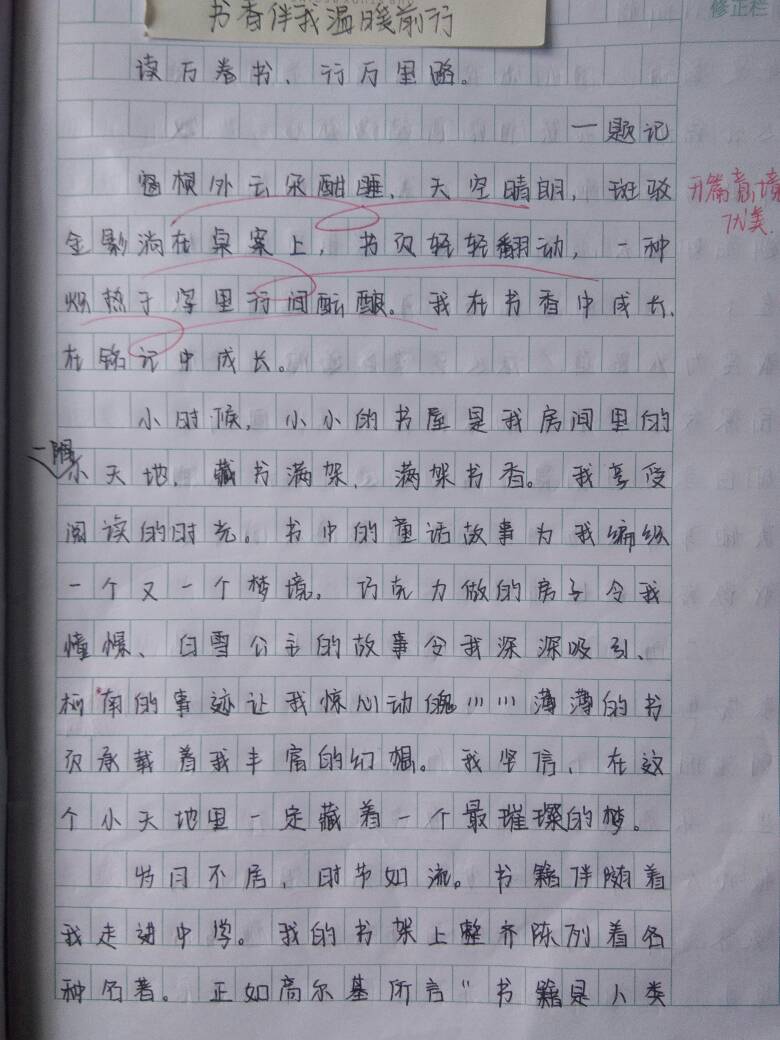 书香伴我温暖前行
修正栏
读万卷书、行万里路。
一题记
窗棂外云朵酣睡、天空晴朗，斑驳
开篇意境
优美.
金影淌在桌案上，书页轻轻翻动，一种
炽热于字里行间酝酿。我在书香中成长、
在铭记中成长。
小时候，小小的书屋是我房间里的
一隅
小天地，藏书满架，满架书香。我享受
阅读的时光。书中的童话故事为我编织
一个又一个梦境，巧克力做的房子令我
憧憬、白雪公主的故事令我深深吸引、
柯南的事迹让我惊心动魄……薄薄的书
页承载着我丰富的幻想。我坚信，在这
个小天地里一定藏着一个最璀璨的梦。
岁月不居，时节如流。书籍伴随着
我走进中学。我的书架上整齐陈列着各
种名著。正如高尔基所言"书籍是人类